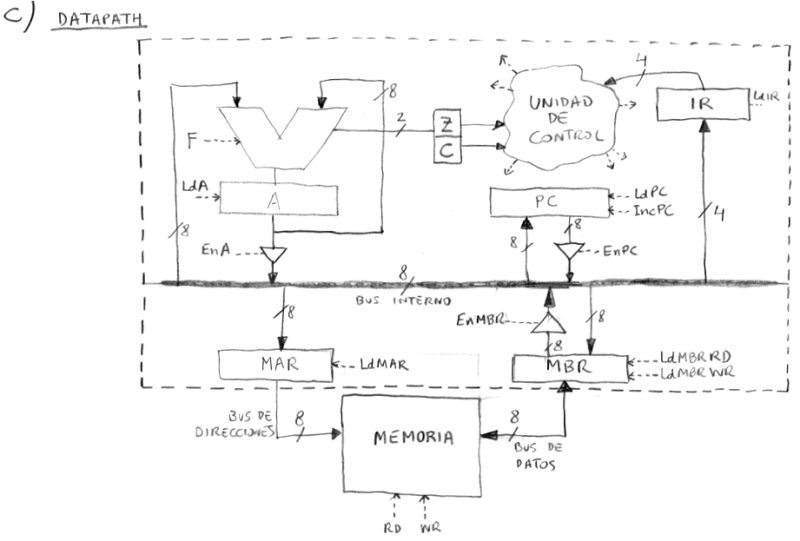 C) DATAPATH
4
8
UNIDAD
DE
CONTROL
IR
LdIR
F
2
Z
C
LdA
A
PC
LdPC
IncPC
8
EnA
8
8
EnPC
4
8
BUS INTERNO
8
EnMBR
8
8
MAR
LdMAR
MBR
LdMBRRD
LdMBRWR
BUS DE
DIRECCIONES
8
MEMORIA
8
BUS DE
DATOS
RD WR